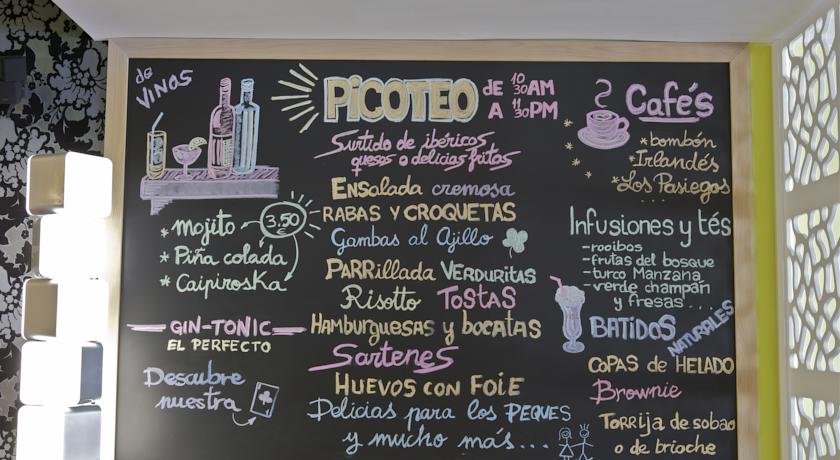 de
VINOS
* Mojito
3,50
* Piña colada
* Caipiroska
GIN-TONIC
EL PERFECTO
Descubre
nuestra
PiCOTEO
DE 10 30 AM
A 11 30 PM
Surtido de ibéricos
quesos o delicias fritas
ENSalada cremosa
RABAS Y CROQUETAS
Gambas al Ajillo
PARRillada VERDURITAS
Risotto TOSTAS
HAMBURGUESAS y bocatas
Sartenes
HUEVOS CON FOIE
Delicias para los PEQUES
y mucho más...
Café's
* bombón
* Irlandés
* Los Pasiegos
...
Infusiones y tés
- rooibos
- frutas del bosque
- turco Manzana
- verde champan
y fresas...
BATIDOS
NATURALES
COPAS de HELADO
Brownie
TORRIJA de sobao
o de brioche